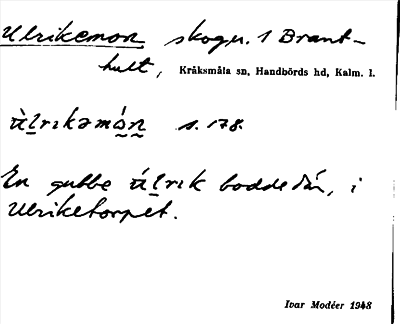 Ulrikemon skogu. 1 Brant-
hult, Kråksmåla sn, Handbörds hd, Kalm. l.
ùlrıkəmón s. 178.
En gubbe úlrık bodde där, i
Ulriketorpet.
Ivar Modéer 1948